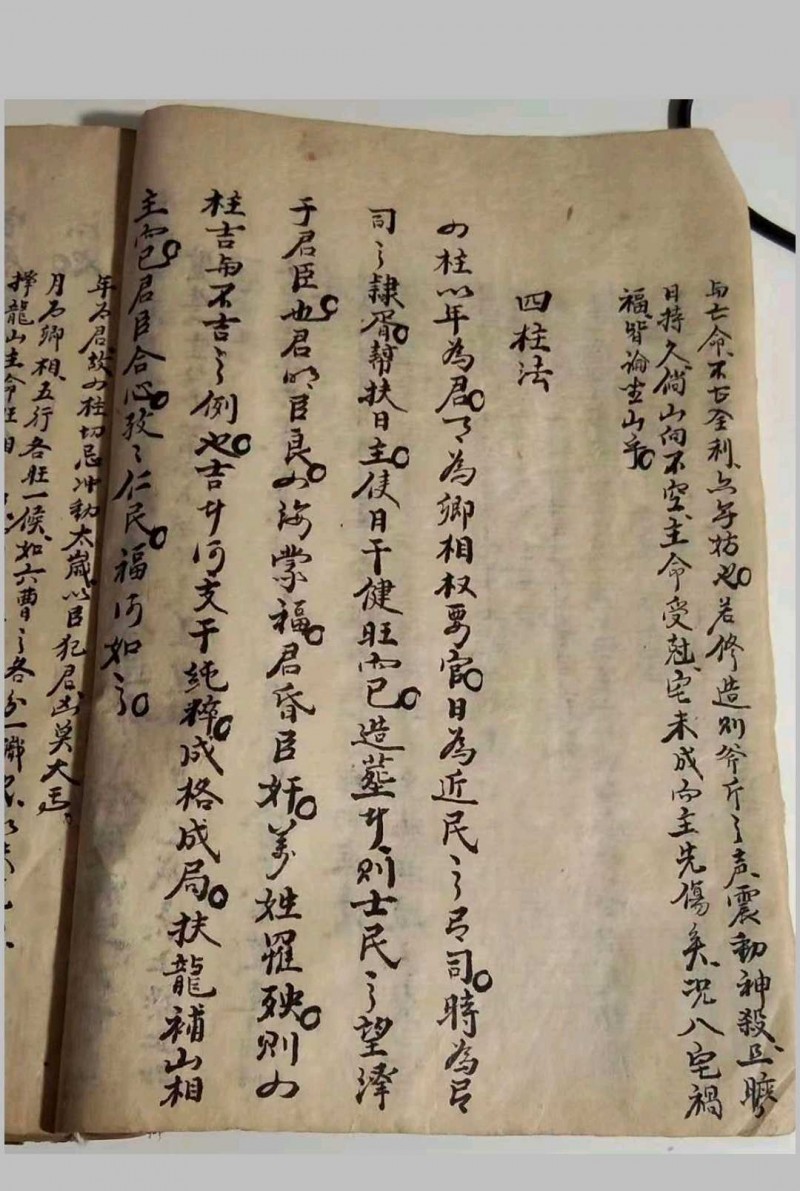 與亡命、不占全利、亦無妨也。若修造則斧斤之声、震動神殺、且曠
日持久、倘山向不空、主命受尅、宅未成而主先傷矣、况八宅禍
福、皆論坐山乎。
四柱法
四柱以年為君。月為卿相权要官。日為近民之有司。時為有
司之隷胥。幫扶日主。使日干健旺而已。造塟者則士民之望澤
于君臣也。君明臣良。四海蒙福。君昏臣奸。萬姓罹殃。則四
柱吉與不吉之例也。吉者何支干純粹。成格成局。扶龍補山相
主而已。君臣合心。孜孜仁民。福何如之。
年為君、故四柱切忌冲動太歲、以臣犯君、凶莫大焉。
月為卿相、五行各旺一候、如六曹之各分一職
擇龍山主命旺相